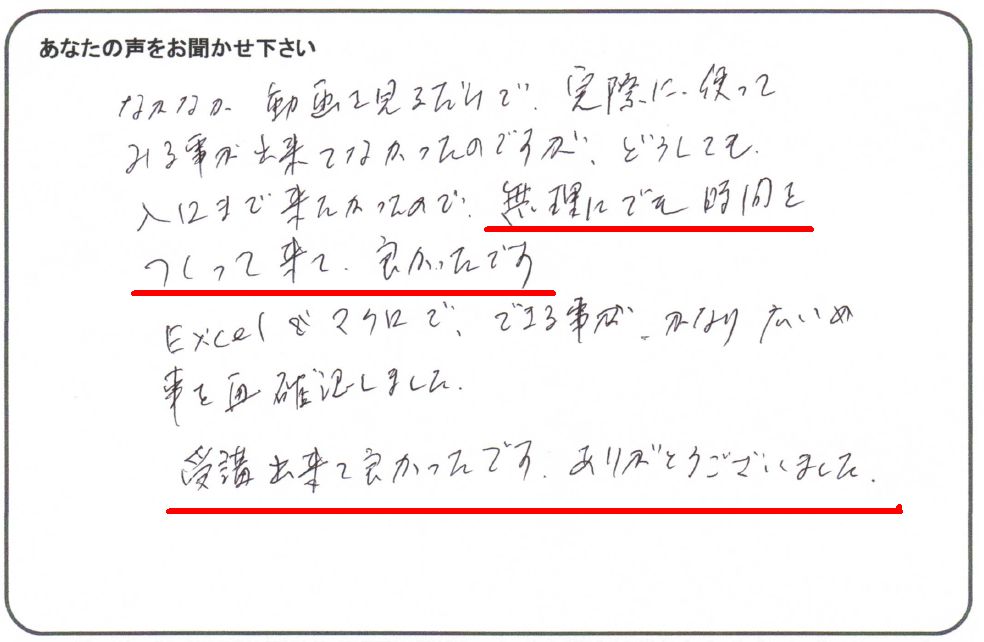 あなたの声をお聞かせ下さい
なかなか 動画を見るだけで、実際に使って
みる事が出来てなかったのですが、どうしても、
入口まで来たかったので、無理にでも時間を
つくって来て、良かったです
Excel マクロで、できる事が、かなり広い
事を再確認しました。
受講出来て良かったです。ありがとうございました。